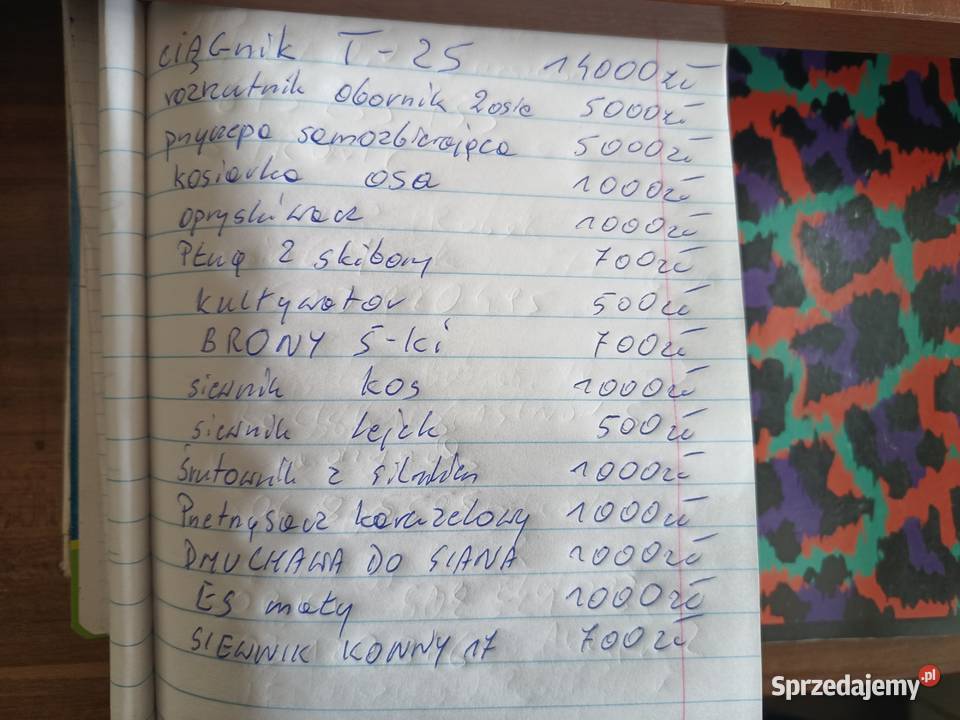 CIĄGnik T-25 14000zł
rozrzutnik obornik 2osie 5000zł
przyczepa samozbierająca 5000zł
kosiarka osa 1000zł
opryskiwacz 1000zł
Pług 2 skibowy 700zł
kultywator 500zł
BRONY 5-ki 700zł
siewnik kos 1000zł
siewnik Lejek 500zł
Śrutownik z silnikiem 1000zł
Przetrząsacz karuzelowy 1000zł
DMUCHAWA DO SIANA 1000zł
ES mały 1000zł
SIEWNIK KONNY 17 700zł
Sprzedajemy.pl